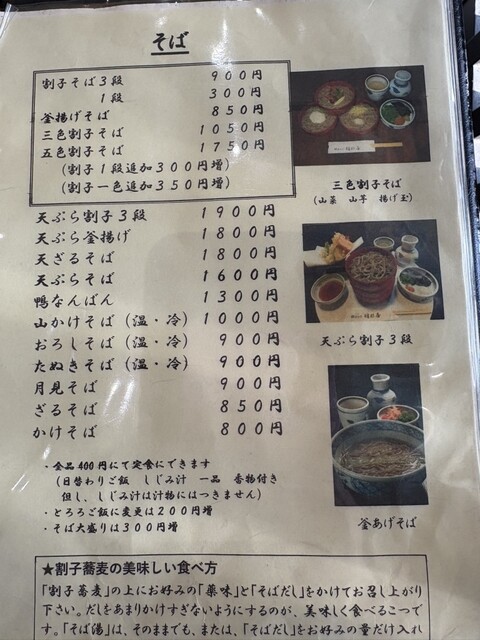 そば
割子そば３段 ９００円
１段 ３００円
釜揚げそば ８５０円
三色割子そば １０５０円
五色割子そば １７５０円
（割子１段追加３００円増）
（割子一色追加３５０円増）
三色割子そば
（山菜 山芋 揚げ玉）
天ぷら割子３段 １９００円
天ぷら釜揚げ １８００円
天ざるそば １８００円
天ぷらそば １６００円
鴨なんばん １３００円
山かけそば（温・冷） １０００円
おろしそば（温・冷） ９００円
たぬきそば（温・冷） ９００円
月見そば ９００円
ざるそば ８５０円
かけそば ８００円
天ぷら割子３段
釜あげそば
・全品400円にて定食にできます
（日替わりご飯 しじみ汁 一品 香物付き
但し、しじみ汁は汁物にはつきません）
・とろろご飯に変更は２００円増
・そば大盛りは３００円増
★割子蕎麦の美味しい食べ方
「割子蕎麦」の上にお好みの「薬味」と「そばだし」をかけてお召し上がり
下さい。だしをあまりかけすぎないようにするのが、美味しく食べるこつで
す。「そば湯」は、そのままでも、または、「そばだし」をお好みの量だけ入れ